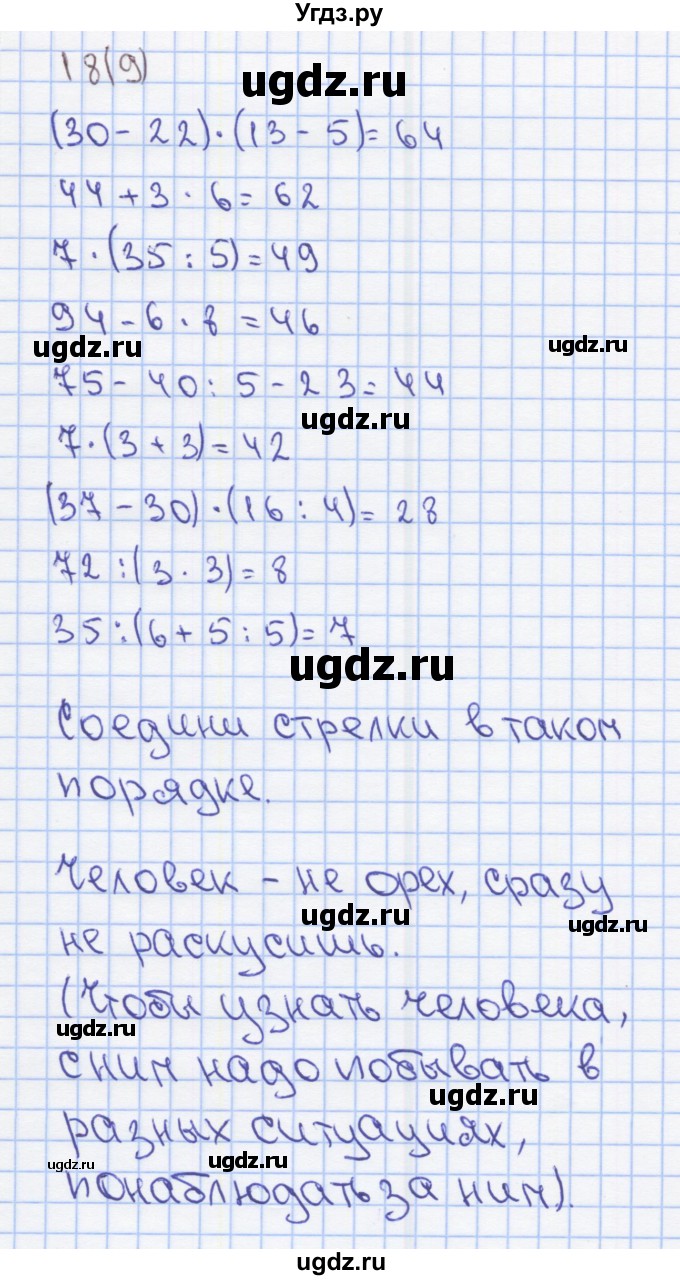 Угдз.ру
18(9)
ugdz.ru
(30 - 22) · (13 - 5) = 64
44 + 3 · 6 = 62
7 · (35 : 5) = 49
94 - 6 · 8 = 46
ugdz.ru ugdz.ru
75 - 40 : 5 - 23 = 44
ugdz.ru
7 · (3 + 3) = 42
(37 - 30) · (16 : 4) = 28
72 : (3 · 3) = 8
35 : (6 + 5 : 5) = 7
ugdz.ru
Соедини стрелки в таком
порядке.
Человек - не орех, сразу
ugdz.ru ugdz.ru
не раскусишь.
(Чтобы узнать человека,
ugdz.ru
с ним надо побывать в
ugdz.ru
разных ситуациях,
ugdz.ru ugdz.ru
понаблюдать за ним).
ugdz.ru